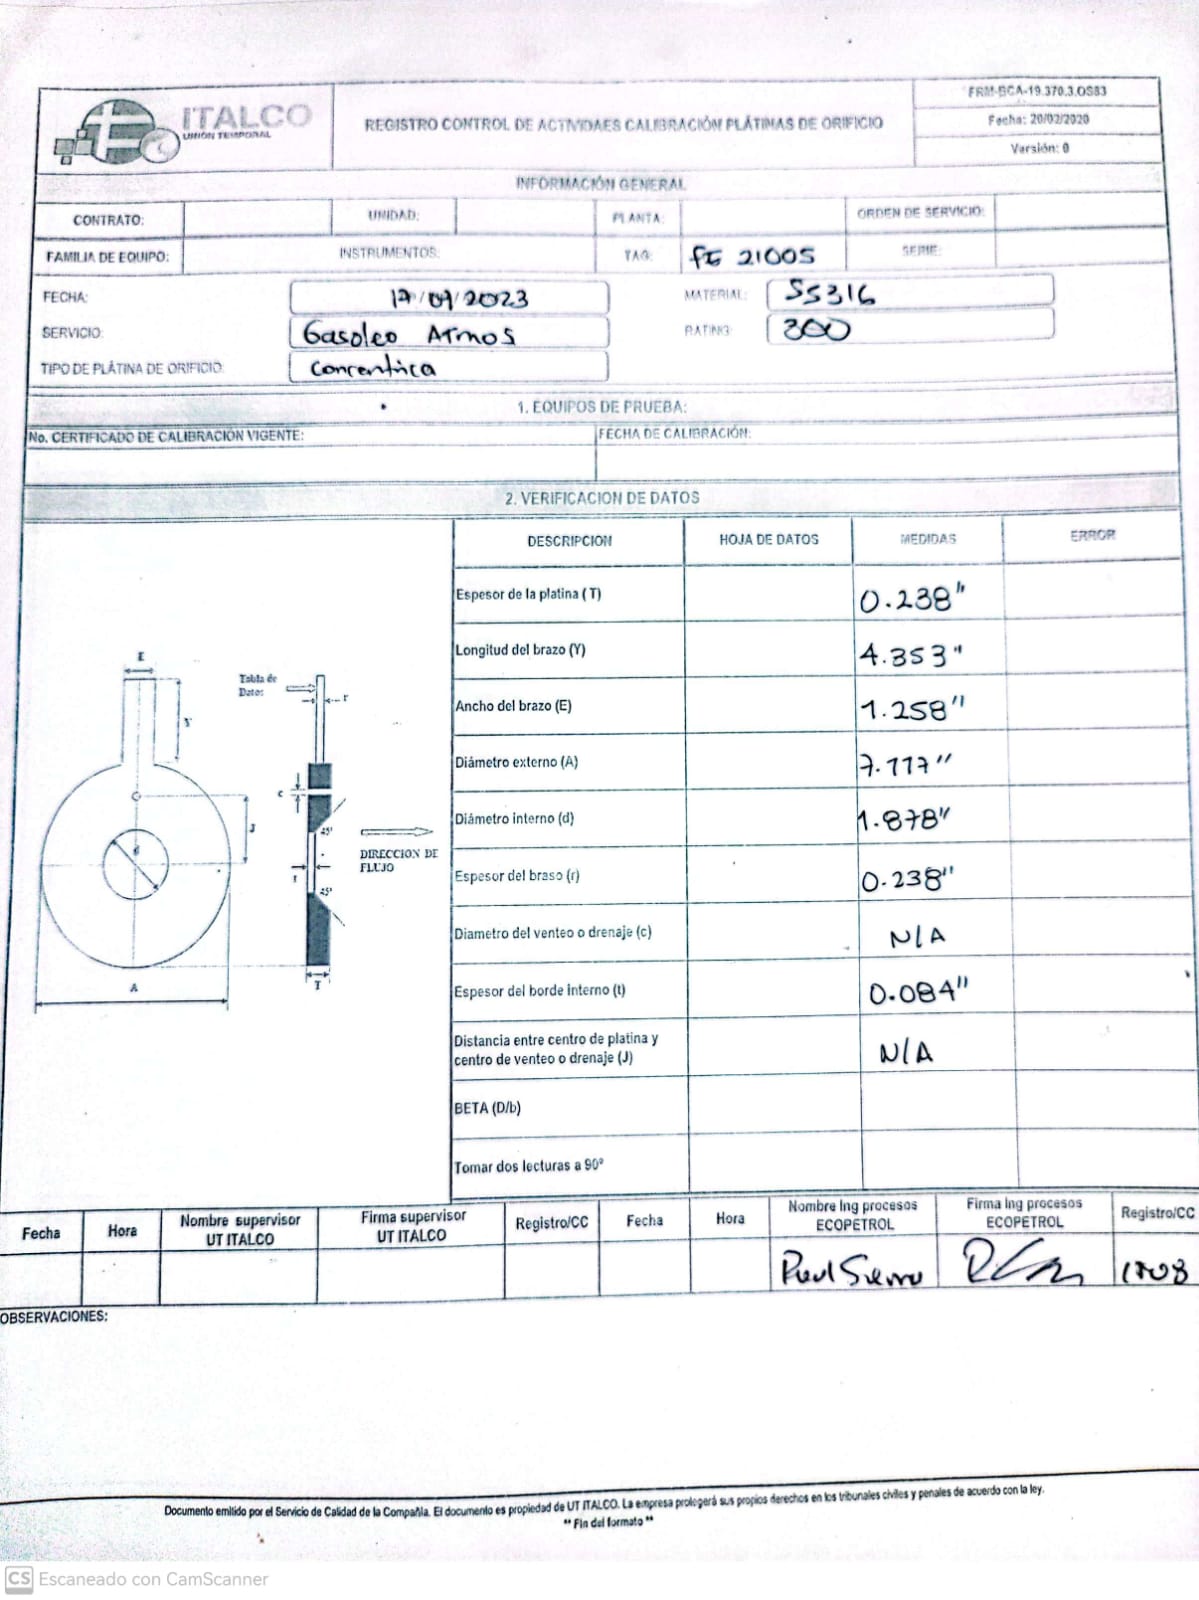 ITALCO
UNIÓN TEMPORAL
REGISTRO CONTROL DE ACTIVIDAES CALIBRACIÓN PLÁTINAS DE ORIFICIO
FRM-BCA-19.370.3.OS83
Fecha: 20/02/2020
Versión: 0
INFORMACIÓN GENERAL
CONTRATO: UNIDAD: PLANTA: ORDEN DE SERVICIO:
FAMILIA DE EQUIPO: INSTRUMENTOS: TAG: FE 21005 SERIE:
FECHA: 17/09/2023 MATERIAL: SS316
SERVICIO: Gasoleo Atmos RATING: 300
TIPO DE PLÁTINA DE ORIFICIO: Concentrica
1. EQUIPOS DE PRUEBA:
No. CERTIFICADO DE CALIBRACIÓN VIGENTE: FECHA DE CALIBRACIÓN:
2. VERIFICACION DE DATOS
DESCRIPCION HOJA DE DATOS MEDIDAS ERROR
Espesor de la platina (T) 0.238"
Longitud del brazo (Y) 4.353"
Ancho del brazo (E) 1.258"
Diámetro externo (A) 7.117"
Diámetro interno (d) 1.878"
Espesor del braso (r) 0.238"
Diametro del venteo o drenaje (c) N/A
Espesor del borde interno (t) 0.084"
Distancia entre centro de platina y
centro de venteo o drenaje (J) N/A
BETA (D/b)
Tomar dos lecturas a 90°
E
Y
Tabla de
Datos
r
c
J
45°
d
DIRECCION DE
FLUJO
t
45°
A
T
Fecha Hora Nombre supervisor
UT ITALCO Firma supervisor
UT ITALCO Registro/CC Fecha Hora Nombre Ing procesos
ECOPETROL Firma Ing procesos
ECOPETROL Registro/CC
Paul Sierra
OBSERVACIONES:
Documento emitido por el Servicio de Calidad de la Compañía. El documento es propiedad de UT ITALCO. La empresa protegerá sus propios derechos en los tribunales civiles y penales de acuerdo con la ley.
** Fin del formato **
CS Escaneado con CamScanner